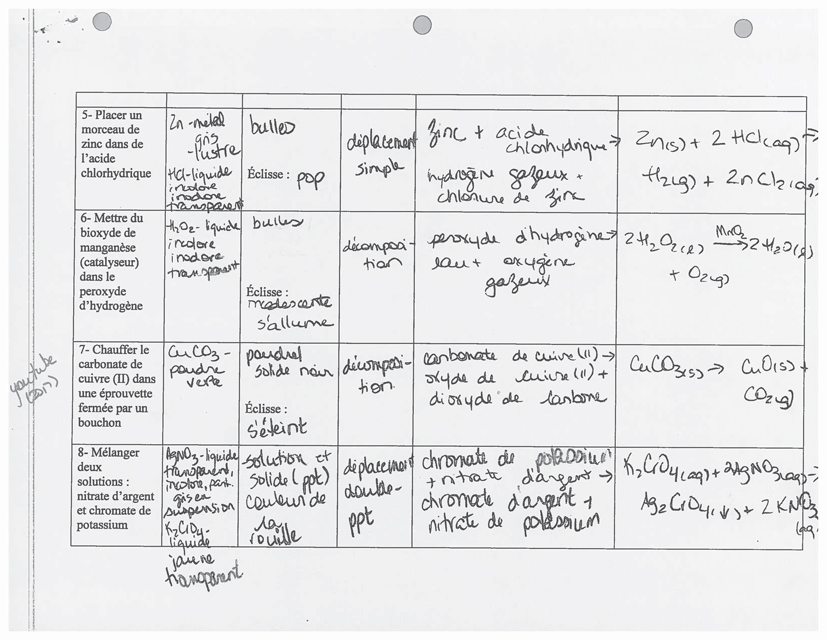 5- Placer un
morceau de
zinc dans de
l'acide
chlorhydrique
Zn - métal
gris
- lustre
HCl - liquide
incolore
inodore
transparent
bulles
Éclisse : pop
déplacement
simple
zinc + acide
chlorhydrique →
hydrogène gazeux +
chlorure de zinc
Zn(s) + 2 HCl(aq) →
H2(g) + ZnCl2(aq)
6- Mettre du
bioxyde de
manganèse
(catalyseur)
dans le
peroxyde
d'hydrogène
H2O2 - liquide
incolore
inodore
transparent
bulles
Éclisse :
s'allume
décomposi-
tion
peroxyde d'hydrogène →
eau + oxygène
gazeux
MnO2
2 H2O2(l) → 2 H2O(l)
+ O2(g)
youtube
(2017)
7- Chauffer le
carbonate de
cuivre (II) dans
une éprouvette
fermée par un
bouchon
CuCO3 -
poudre
verte
solide noir
Éclisse :
s'éteint
décomposi-
tion
carbonate de cuivre (II) →
oxyde de cuivre (II) +
dioxyde de carbone
CuCO3(s) → CuO(s) +
CO2(g)
8- Mélanger
deux
solutions :
nitrate d'argent
et chromate de
potassium
AgNO3 - liquide
transparent,
incolore, part.
grises en
suspension
K2CrO4 -
liquide
jaune
transparent
- solution et
solide (ppt)
couleur de
la
rouille
déplacement
double -
ppt
chromate de potassium
+ nitrate d'argent →
chromate d'argent +
nitrate de potassium
K2CrO4(aq) + 2AgNO3(aq) →
Ag2CrO4(↓) + 2 KNO3
(aq)